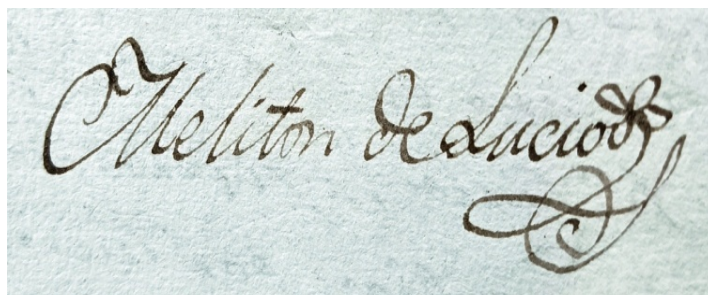 Meliton de Lucio